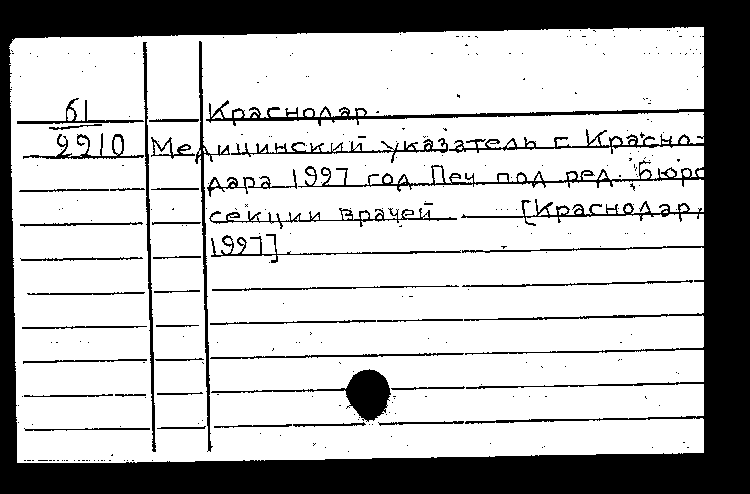 61
9910
Краснодар.
Медицинский указатель г. Красно-
дара 1997 год Печ под ред. Бюро
секции врачей. [Краснодар,
1997].